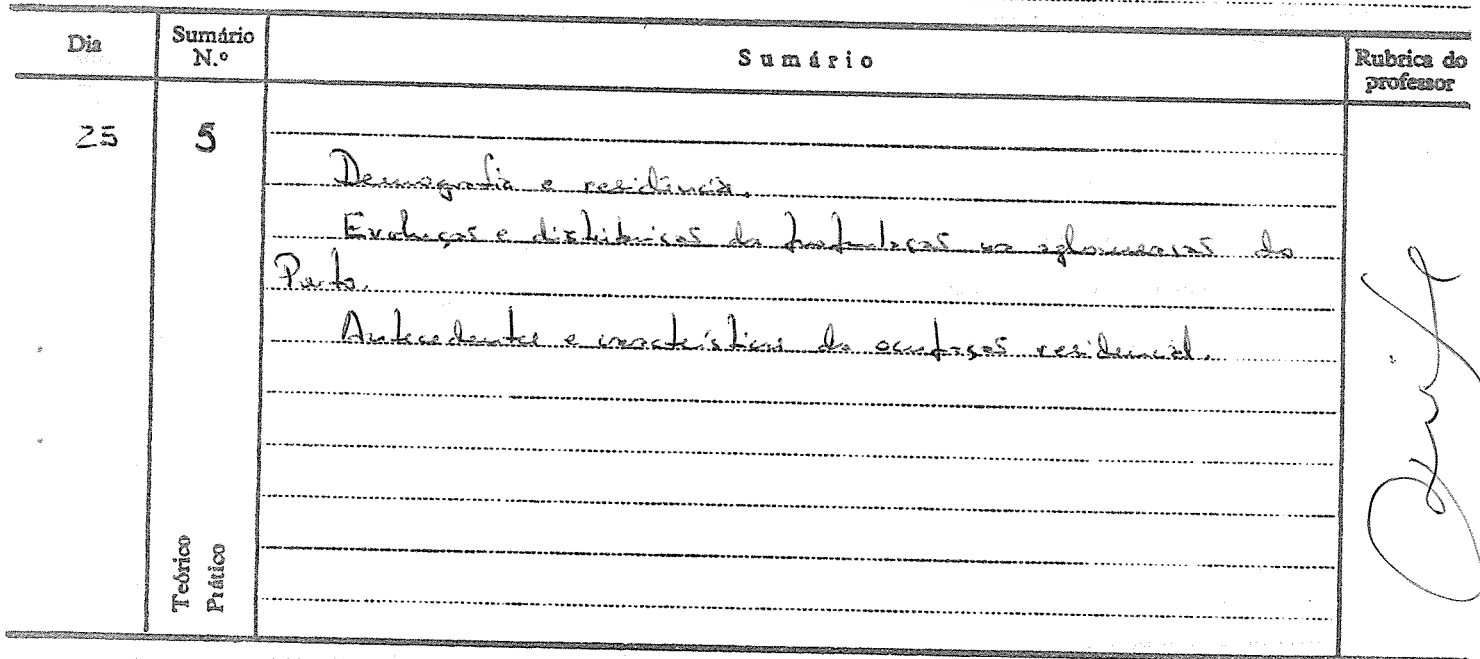 Dia
Sumário
N.º
Sumário
Rubrica do
professor
25
5
Demografia e residência.
Evolução e distribuição da população na aglomeração do
Porto.
Antecedentes e características da ocupação residencial.
Teórico
Prático